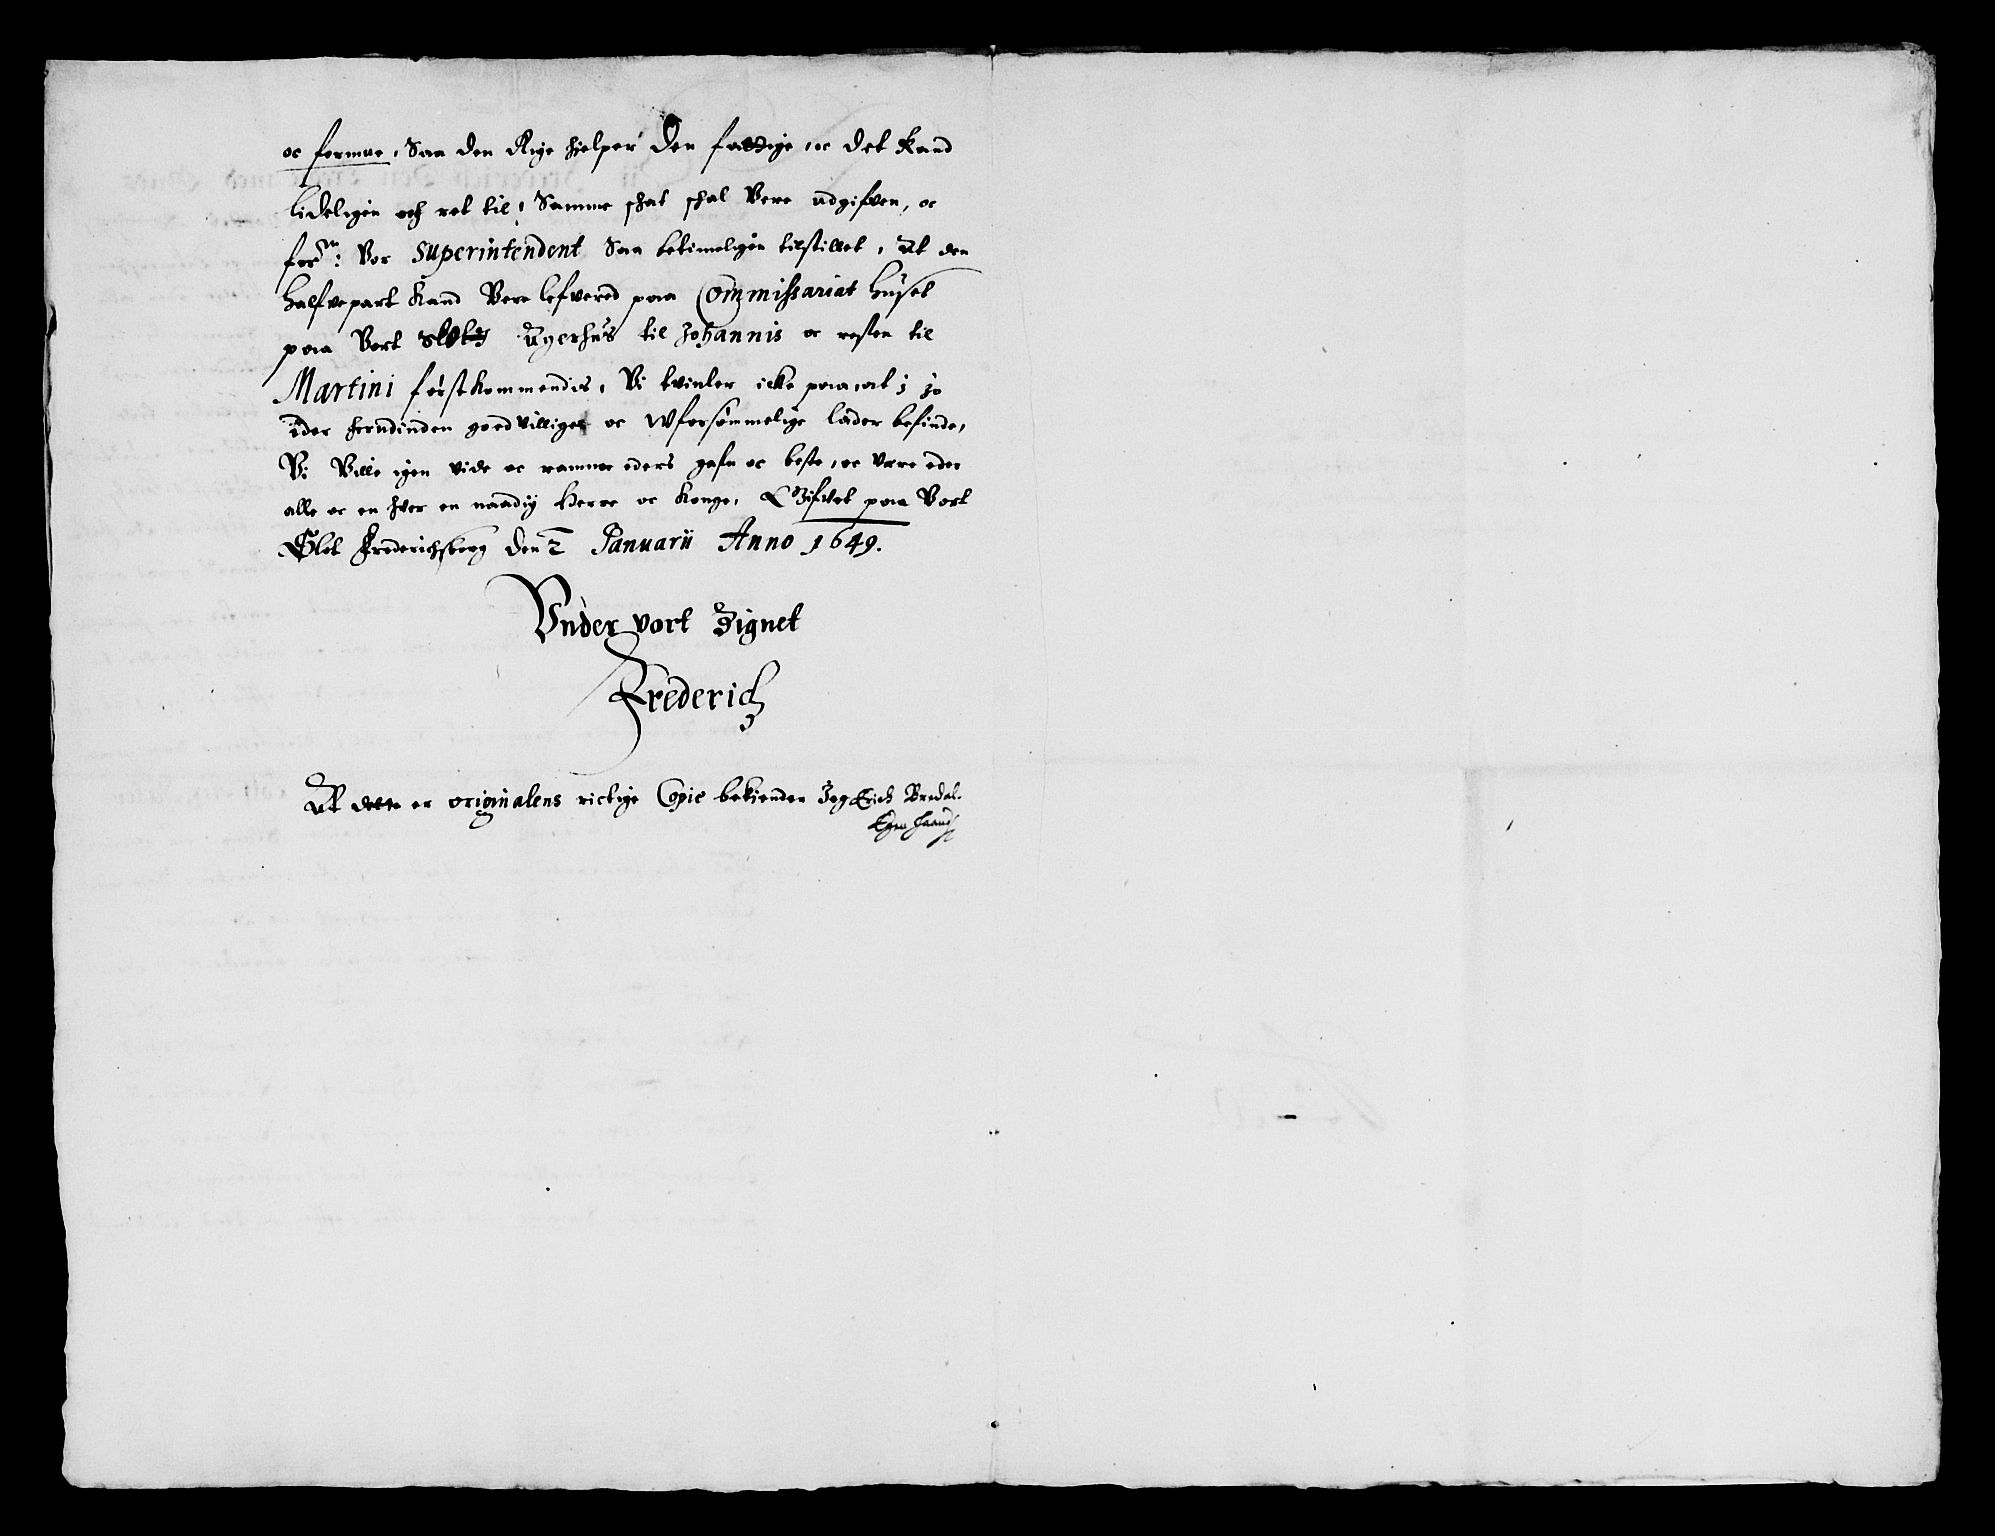 oc formue, Saa den Rige hielper den fattige, oc det kand
lideligen och ret til, Samme schat schal Vere udgifven, oc
forⁿ: Vor Superintendent Saa betimeligen tilstillet, At den
halfvepart kand Vere lefvered paa Commissariat huset
paa Vort Slot Agerhus til Johannis oc resten til
Martini førstkommendis, Vi tvinler icke paa, at j jo
eder herudinden goedvilliger oc wforsømmelige lader befinde,
Vi Ville igen vide oc ramme eders gafn oc beste, oc Vere eder
alle oc en hver en naadig Herre oc Konge, Gifvet paa Vort
Slot Frederichsborg den 2 Januarii Anno 1649.
Vnder vort Zignet
Frederich
At dette er originalens rictige Copie bekiender Jeg Erich Bredal.
Egen haand